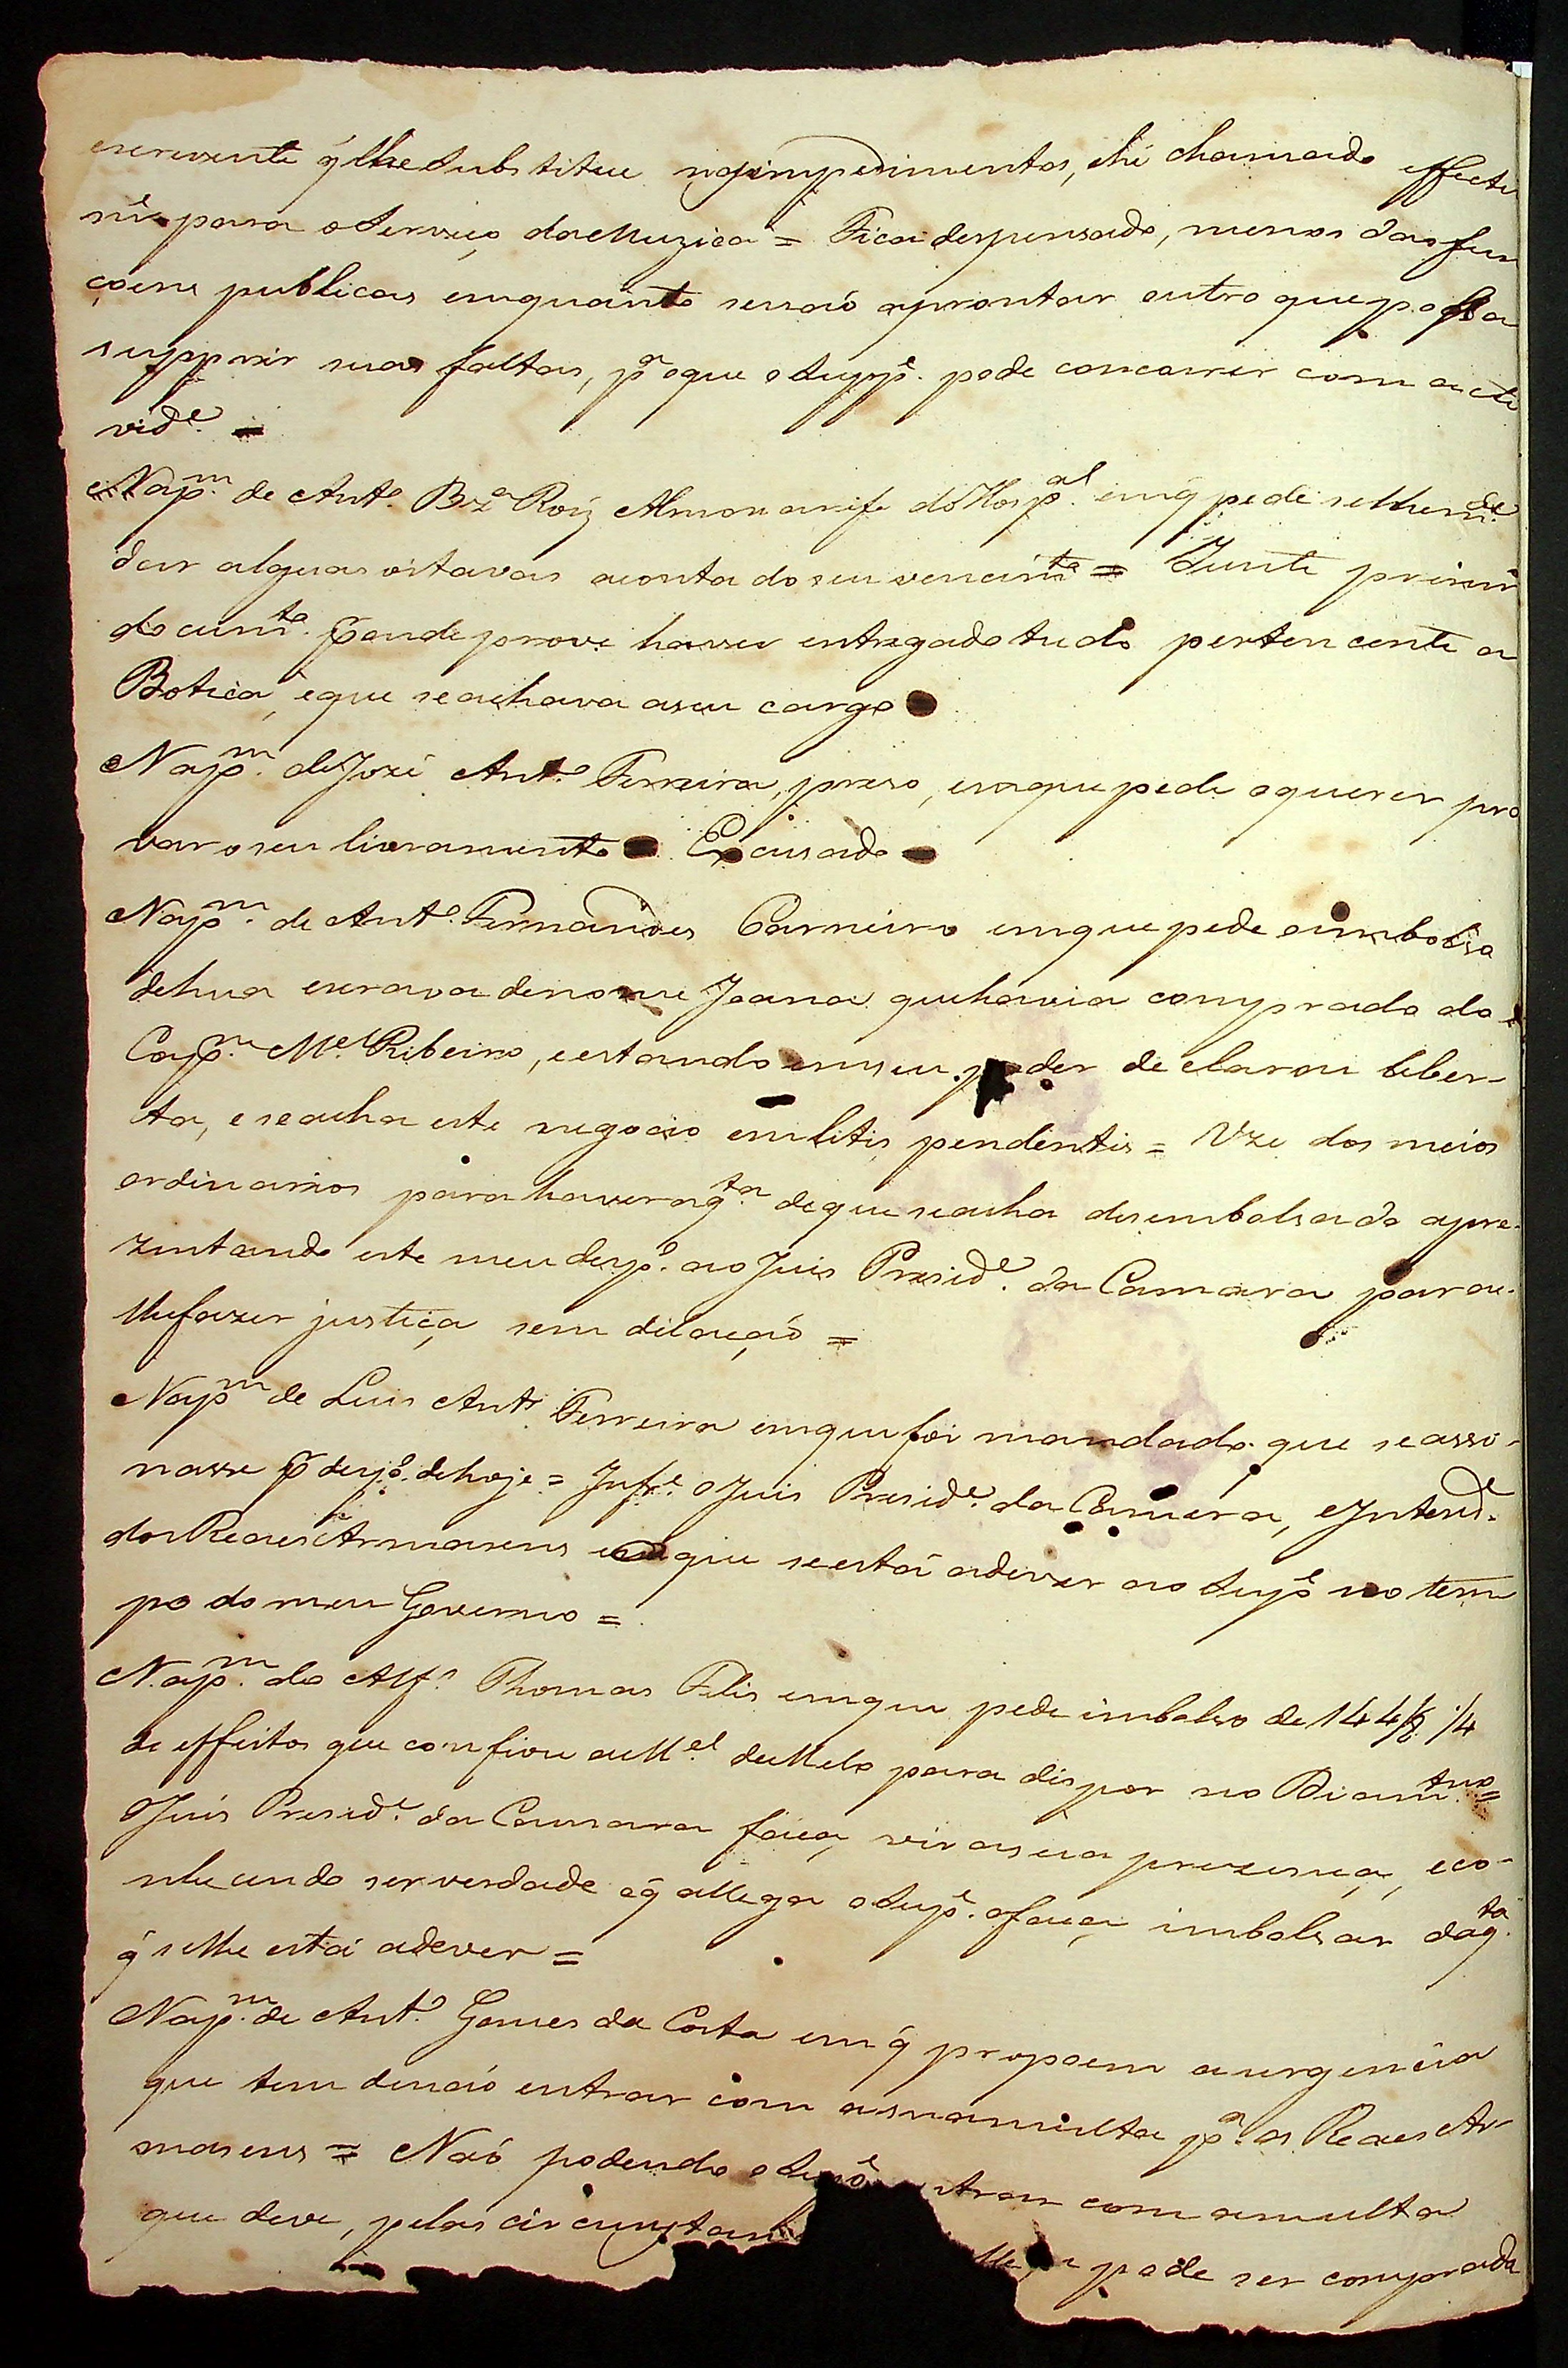 escrevente q̃ lhe substitue nos impedimentos, e hé chamado effecti
vê para o serviço da Muzica = Fica despensado, menos das fun
çoens publicas emquanto se naó aprontar outro que possa
supprir suas faltas, pª o que o Suppê. pode concorrer com acti
vidê. =
Na pm. de Antº. Bzª Roiz Almoxarife do Hospal. em q̃ pede se lhe mde
dar alguas oitavas a conta do seu vencimto = Junte primrº
documto. p̃ onde prove haver entregado tudo pertencente a
Botica, e que se achava a seu cargo =
Na pm. de Jozé Antº Ferreira, prezo, em que pede o querer pro
var o seu livramento = Excusado =
Na pm. de Antº. Fernandes Carneiro em que pede o imbolso
de hua escrava de nome Joana que havia comprado ao
Capm. Mel. Ribeiro, e estando em seu poder declarou liber-
ta, e se acha este negocio em litis pendentis = Uze dos meios
ordinarios para haver a qta. de que se acha desembolsado apre-
zentando este meu despº. ao Juis Prezidê. da Camara para
lhe fazer justiça sem dilaçaó =
Na pm de Luis Antº Ferreira em que foi mandado que se assi-
nasse p̃ despº. de hoje = Infê. o Juis Presidê. da Camera, e Intendê.
dos Reaes Armasens o que se está a dever ao Supê no tem
po do meu Governo =
Na pm. do Alfs. Thomas Felis em que pede imbolso de 144/8 1/4
de effeitos que confiou a Mel. de Melo para dispor no Diamtno =
O Juis Presidê. da Camara faça vir a sua prezença, e co-
nhecendo ser verdade o q̃ allega o Supê. o faça imbolsar da qta.
q̃ se lhe está a dever =
Na pm. de Antº. Gomes da Costa em q̃ propoem a urgencia
que tem de naó entrar com a sua multa pª. os Reaes Ar-
masens = Naó podendo o Supê entrar com a multa
que deve, pelas circunstan pode ser comprada